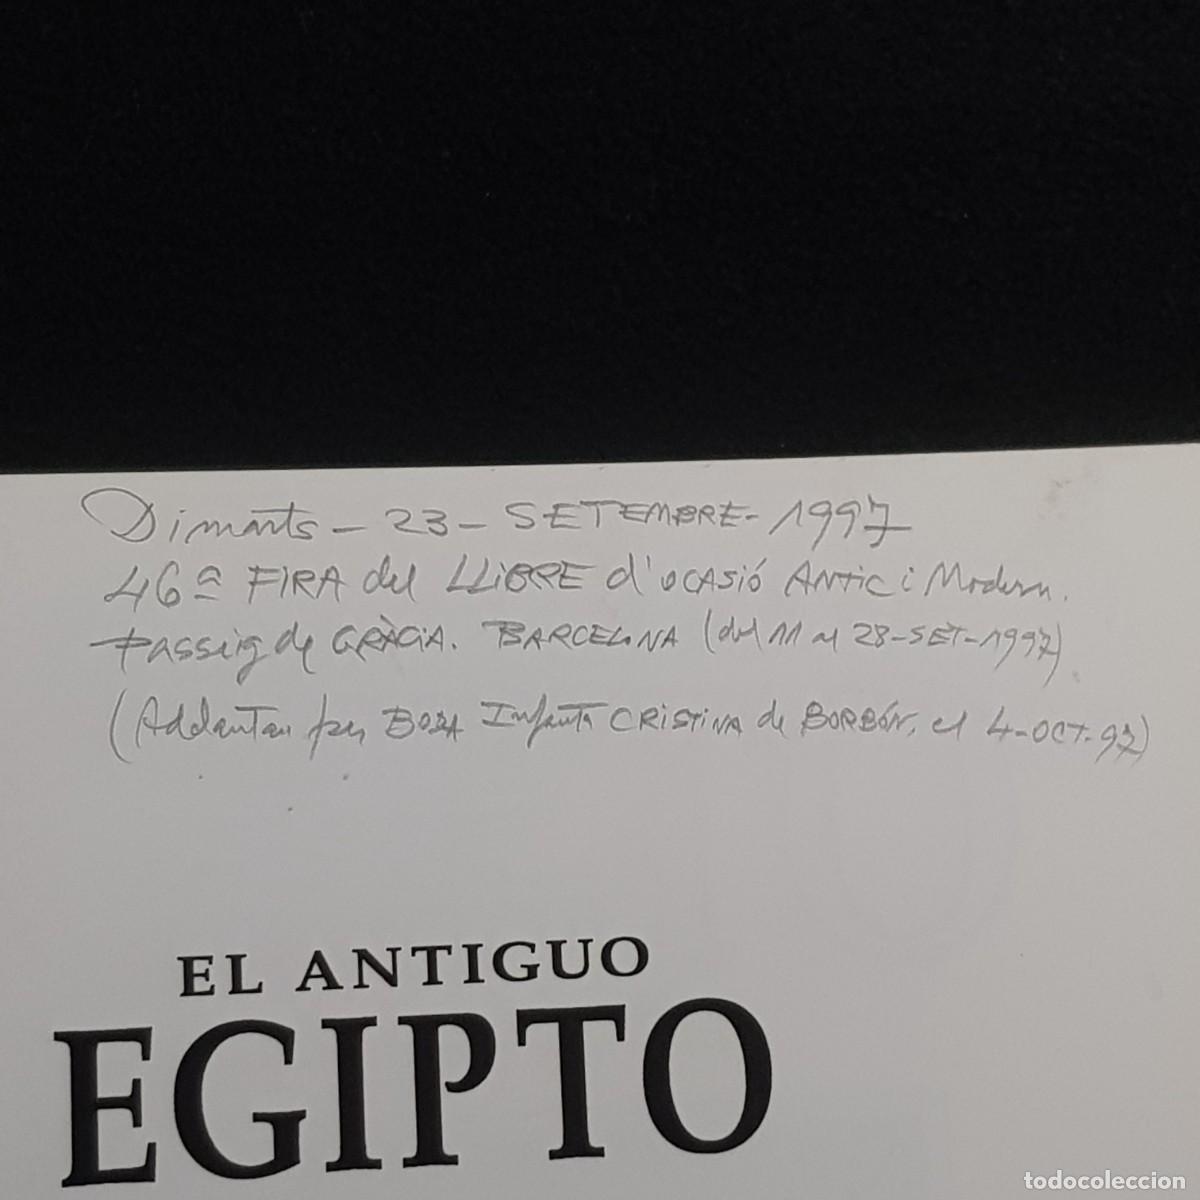 Dimarts - 23 - SETEMBRE - 1997
46ª FIRA del LLIBRE d'ocasió ANTIC i Modern.
Passeig de GRÀCIA. BARCELONA (del 11 al 28-SET-1997)
(Addantan per BODA Infanta CRISTINA de BORBÓN, el 4-OCT-97)
EL ANTIGUO
EGIPTO
todocoleccion